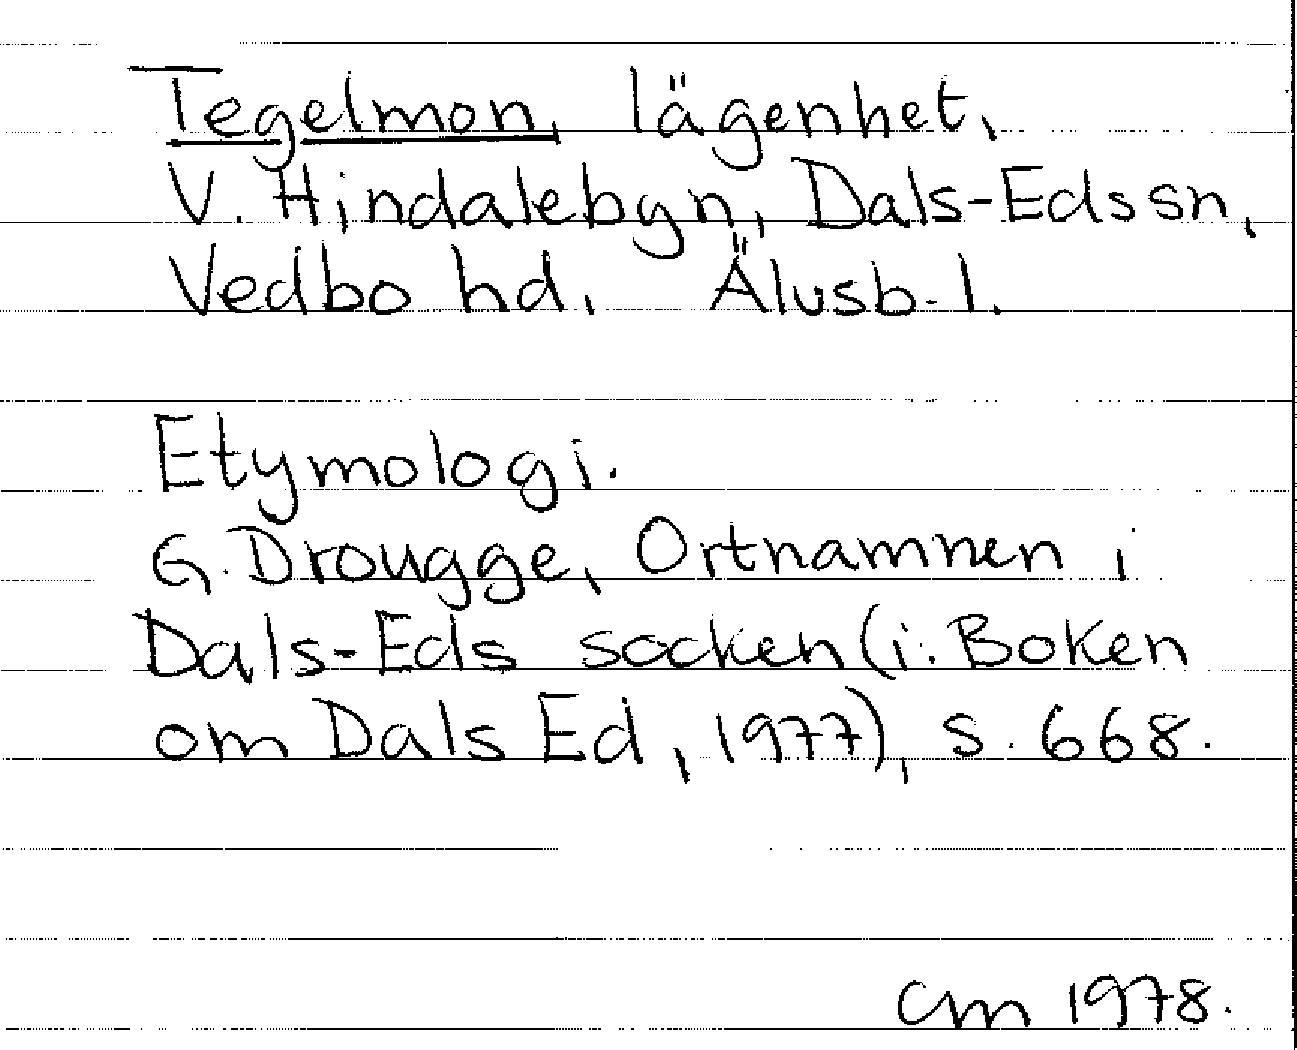 Tegelmon, lägenhet,
V. Hindalebyn, Dals-Eds sn,
Vedbo hd, Älvsb. l.
Etymologi.
G. Drougge, Ortnamnen i
Dals-Eds socken (i: Boken
om Dals Ed, 1977), s. 668.
CM 1978.